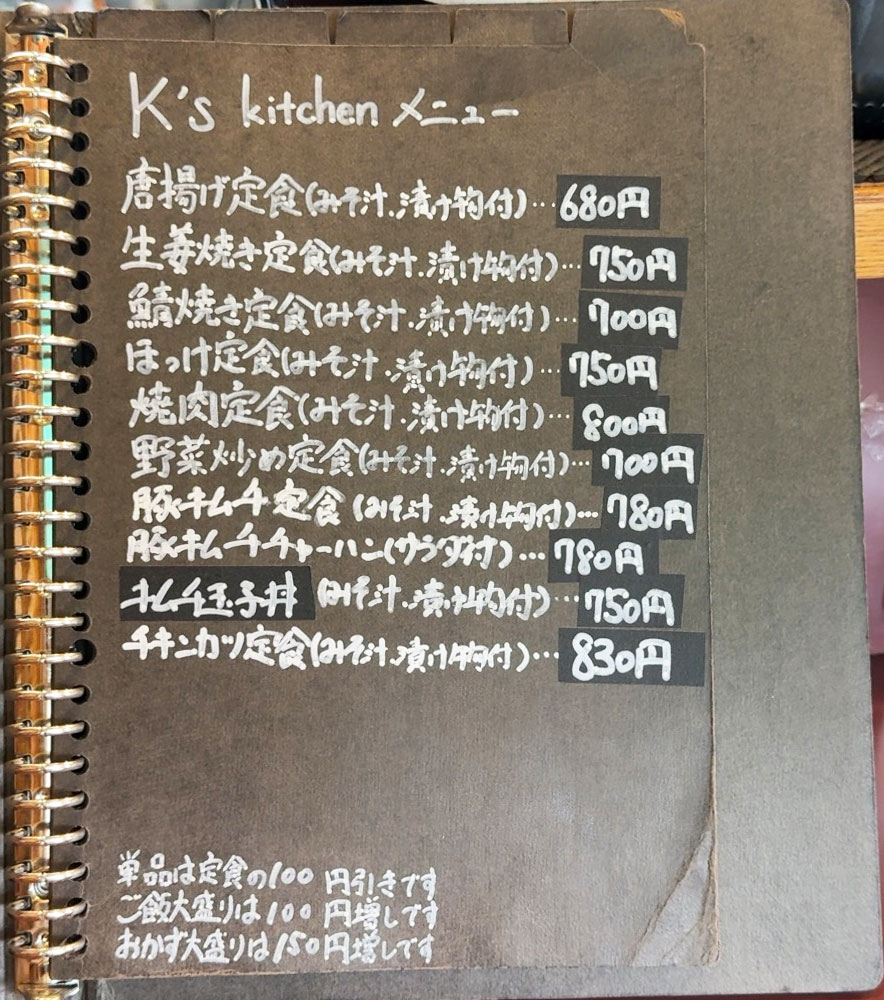 K's kitchen メニュー
唐揚げ定食(みそ汁.漬け物付)…680円
生姜焼き定食(みそ汁.漬け物付)…750円
鯖焼き定食(みそ汁.漬け物付)…700円
ほっけ定食(みそ汁.漬け物付)…750円
焼肉定食(みそ汁.漬け物付)…800円
野菜炒め定食(みそ汁.漬け物付)…700円
豚キムチ定食(みそ汁.漬け物付)…780円
豚キムチチャーハン(サラダ付)…780円
キムチ玉子丼(みそ汁.漬け物付)…750円
チキンカツ定食(みそ汁.漬け物付)…830円
単品は定食の100円引きです
ご飯大盛りは100円増しです
おかず大盛りは150円増しです